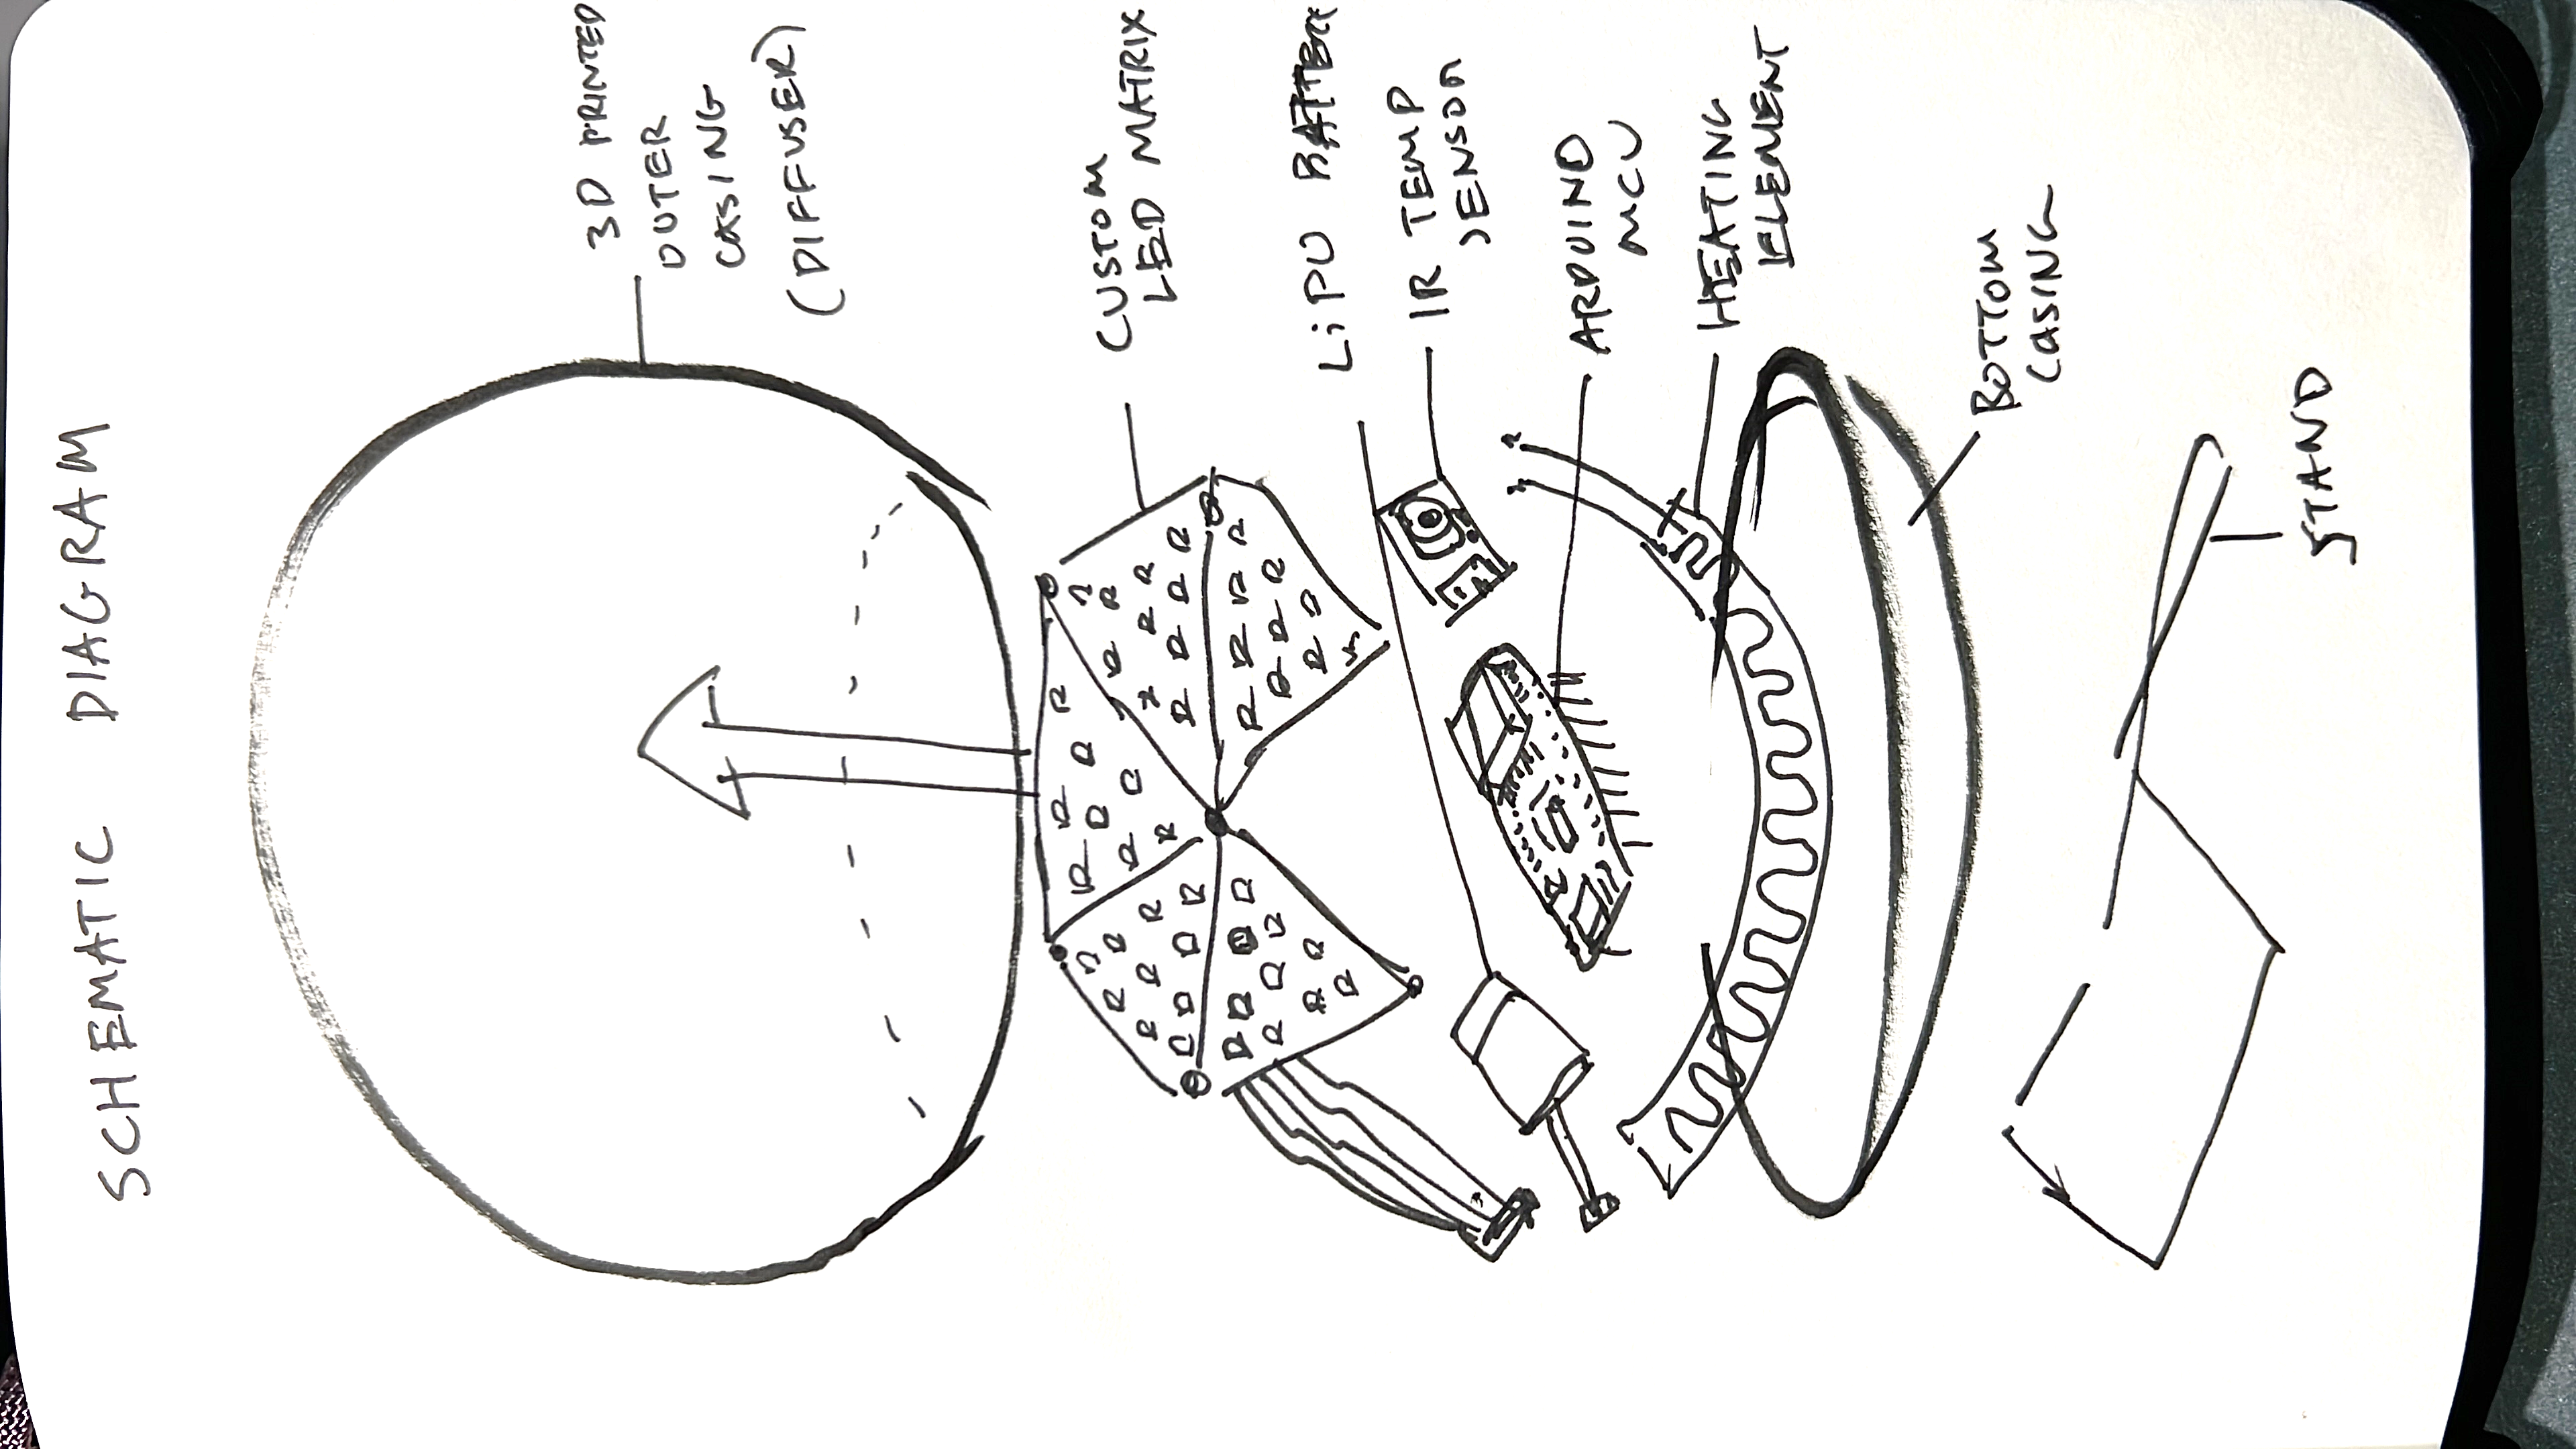 SCHEMATIC DIAGRAM
3D PRINTED
OUTER
CASING
(DIFFUSER)
CUSTOM
LED MATRIX
LiPO BATTERY
IR TEMP
SENSOR
ARDUINO
MCU
HEATING
ELEMENT
BOTTOM
CASING
STAND